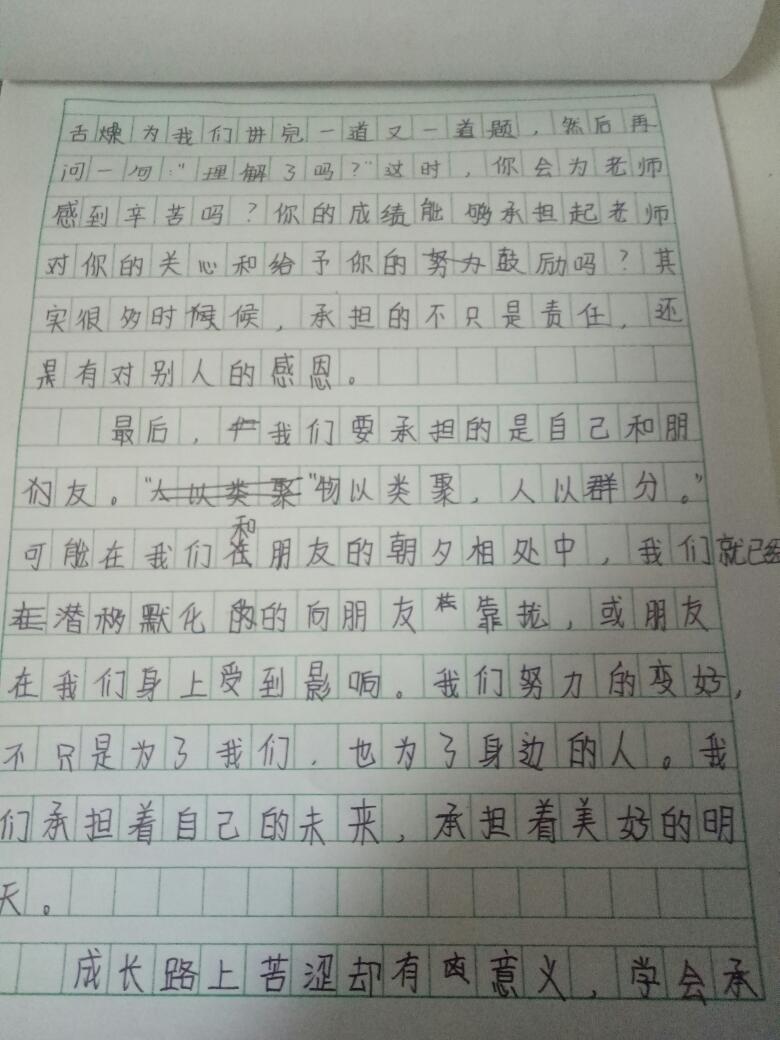 舌燥为我们讲完一道又一道题，然后再
问一句："理解了吗？"这时，你会为老师
感到辛苦吗？你的成绩能够承担起老师
对你的关心和给予你的努力鼓励吗？其
实很多时候候，承担的不只是责任，还
果有对别人的感恩。
最后，我们要承担的是自己和朋
们友。"人以类聚"物以类聚，人以群分。"
可能在我们和朋友的朝夕相处中，我们就已经
在潜移默化的向朋友靠拢，或朋友
在我们身上受到影响。我们努力的变好，
不只是为了我们，也为了身边的人。我
们承担着自己的未来，承担着美好的明
天。
成长路上苦涩却有意义，学会承